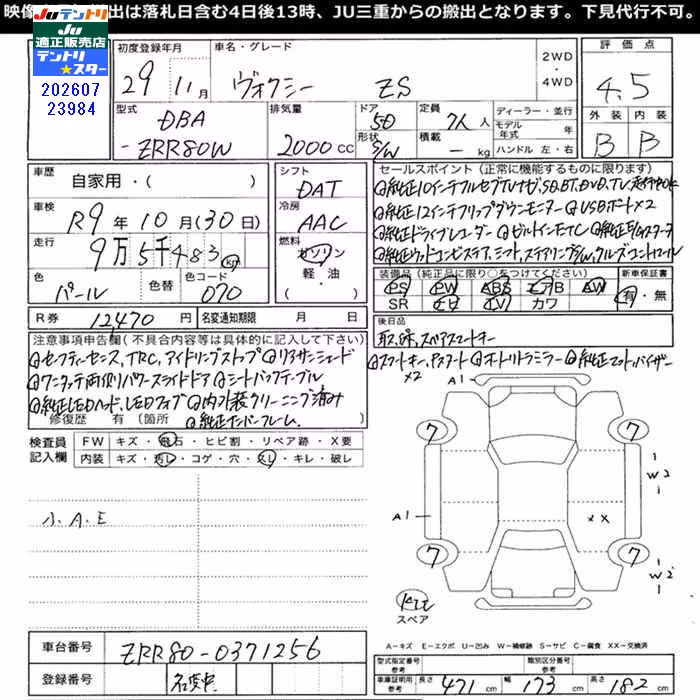 映像 出は落札日含む4日後13時、JU三重からの搬出となります。下見代行不可。
JUテントリ
適正販売店
テントリ
★スター
202607
23984
初度登録年月
29 年 11月
車名・グレード
ヴォクシー ZS
2WD
4WD
評価点
4.5
外装 内装
B B
型式
DBA
-ZRR80W
排気量
2000 CC
ドア
5D
形状
S/W
定員
7人 人
積載
- kg
ディーラー・並行
モデル年式 年
ハンドル 左・右
車歴
自家用・( )
シフト
DAT
車検
R9年10月(30日)
冷房
AAC
走行
9万5千483km
燃料
ガソリン
軽・油
( )
色
パール
色替
色コード
070
R券 12470 円
名変通知期限 月 日
セールスポイント(正常に機能するものに限ります)
純正10インチフルセグTVナビ,SD,BT,DVD,TV,走行中OK
純正12インチフリップダウンモニター USBポート×2
純正ドライブレコーダー ビルトインETC 純正E/Gスターター
純正ウッドコンビステア,シフト,ステアリングS/W,クルーズコントロール
装備品(純正品に限り○をつけてください)
PS PW ABS エアB AW
SR ナビ TV カワ
新車保証書
有・無
後日品
取,保,スペアスマートキー
注意事項申告欄(不具合内容等は具体的に記入して下さい)
セーフティーセンス,TRC,アイドリングストップ リアサンシェード
ワンタッチ両側パワースライドドア シートバックテーブル
純正LEDヘッド,LEDフォグ 内外装クリーニング済み
修復歴 有(箇所 純正ナンバーフレーム.
スマートキー,Pスタート オートリトラミラー 純正マット,バイザー
×2
検査員
記入欄
FW キズ・飛石・ヒビ割・リペア跡・X要
内装 キズ・汚レ・コゲ・穴・スレ・キレ・破レ
小.A.E
A1
7 7
W2
A1
××
7 7
W2
スペア
A=キズ E=エクボ U=凹み W=補修跡 S=サビ C=腐食 XX=交換済
車台番号 ZRR80-0371256
登録番号 名変中
型式指定番号
参考
類別区分番号
参考
車庫証明用
参考
長さ 471 cm 幅 173 cm 高さ 182 cm